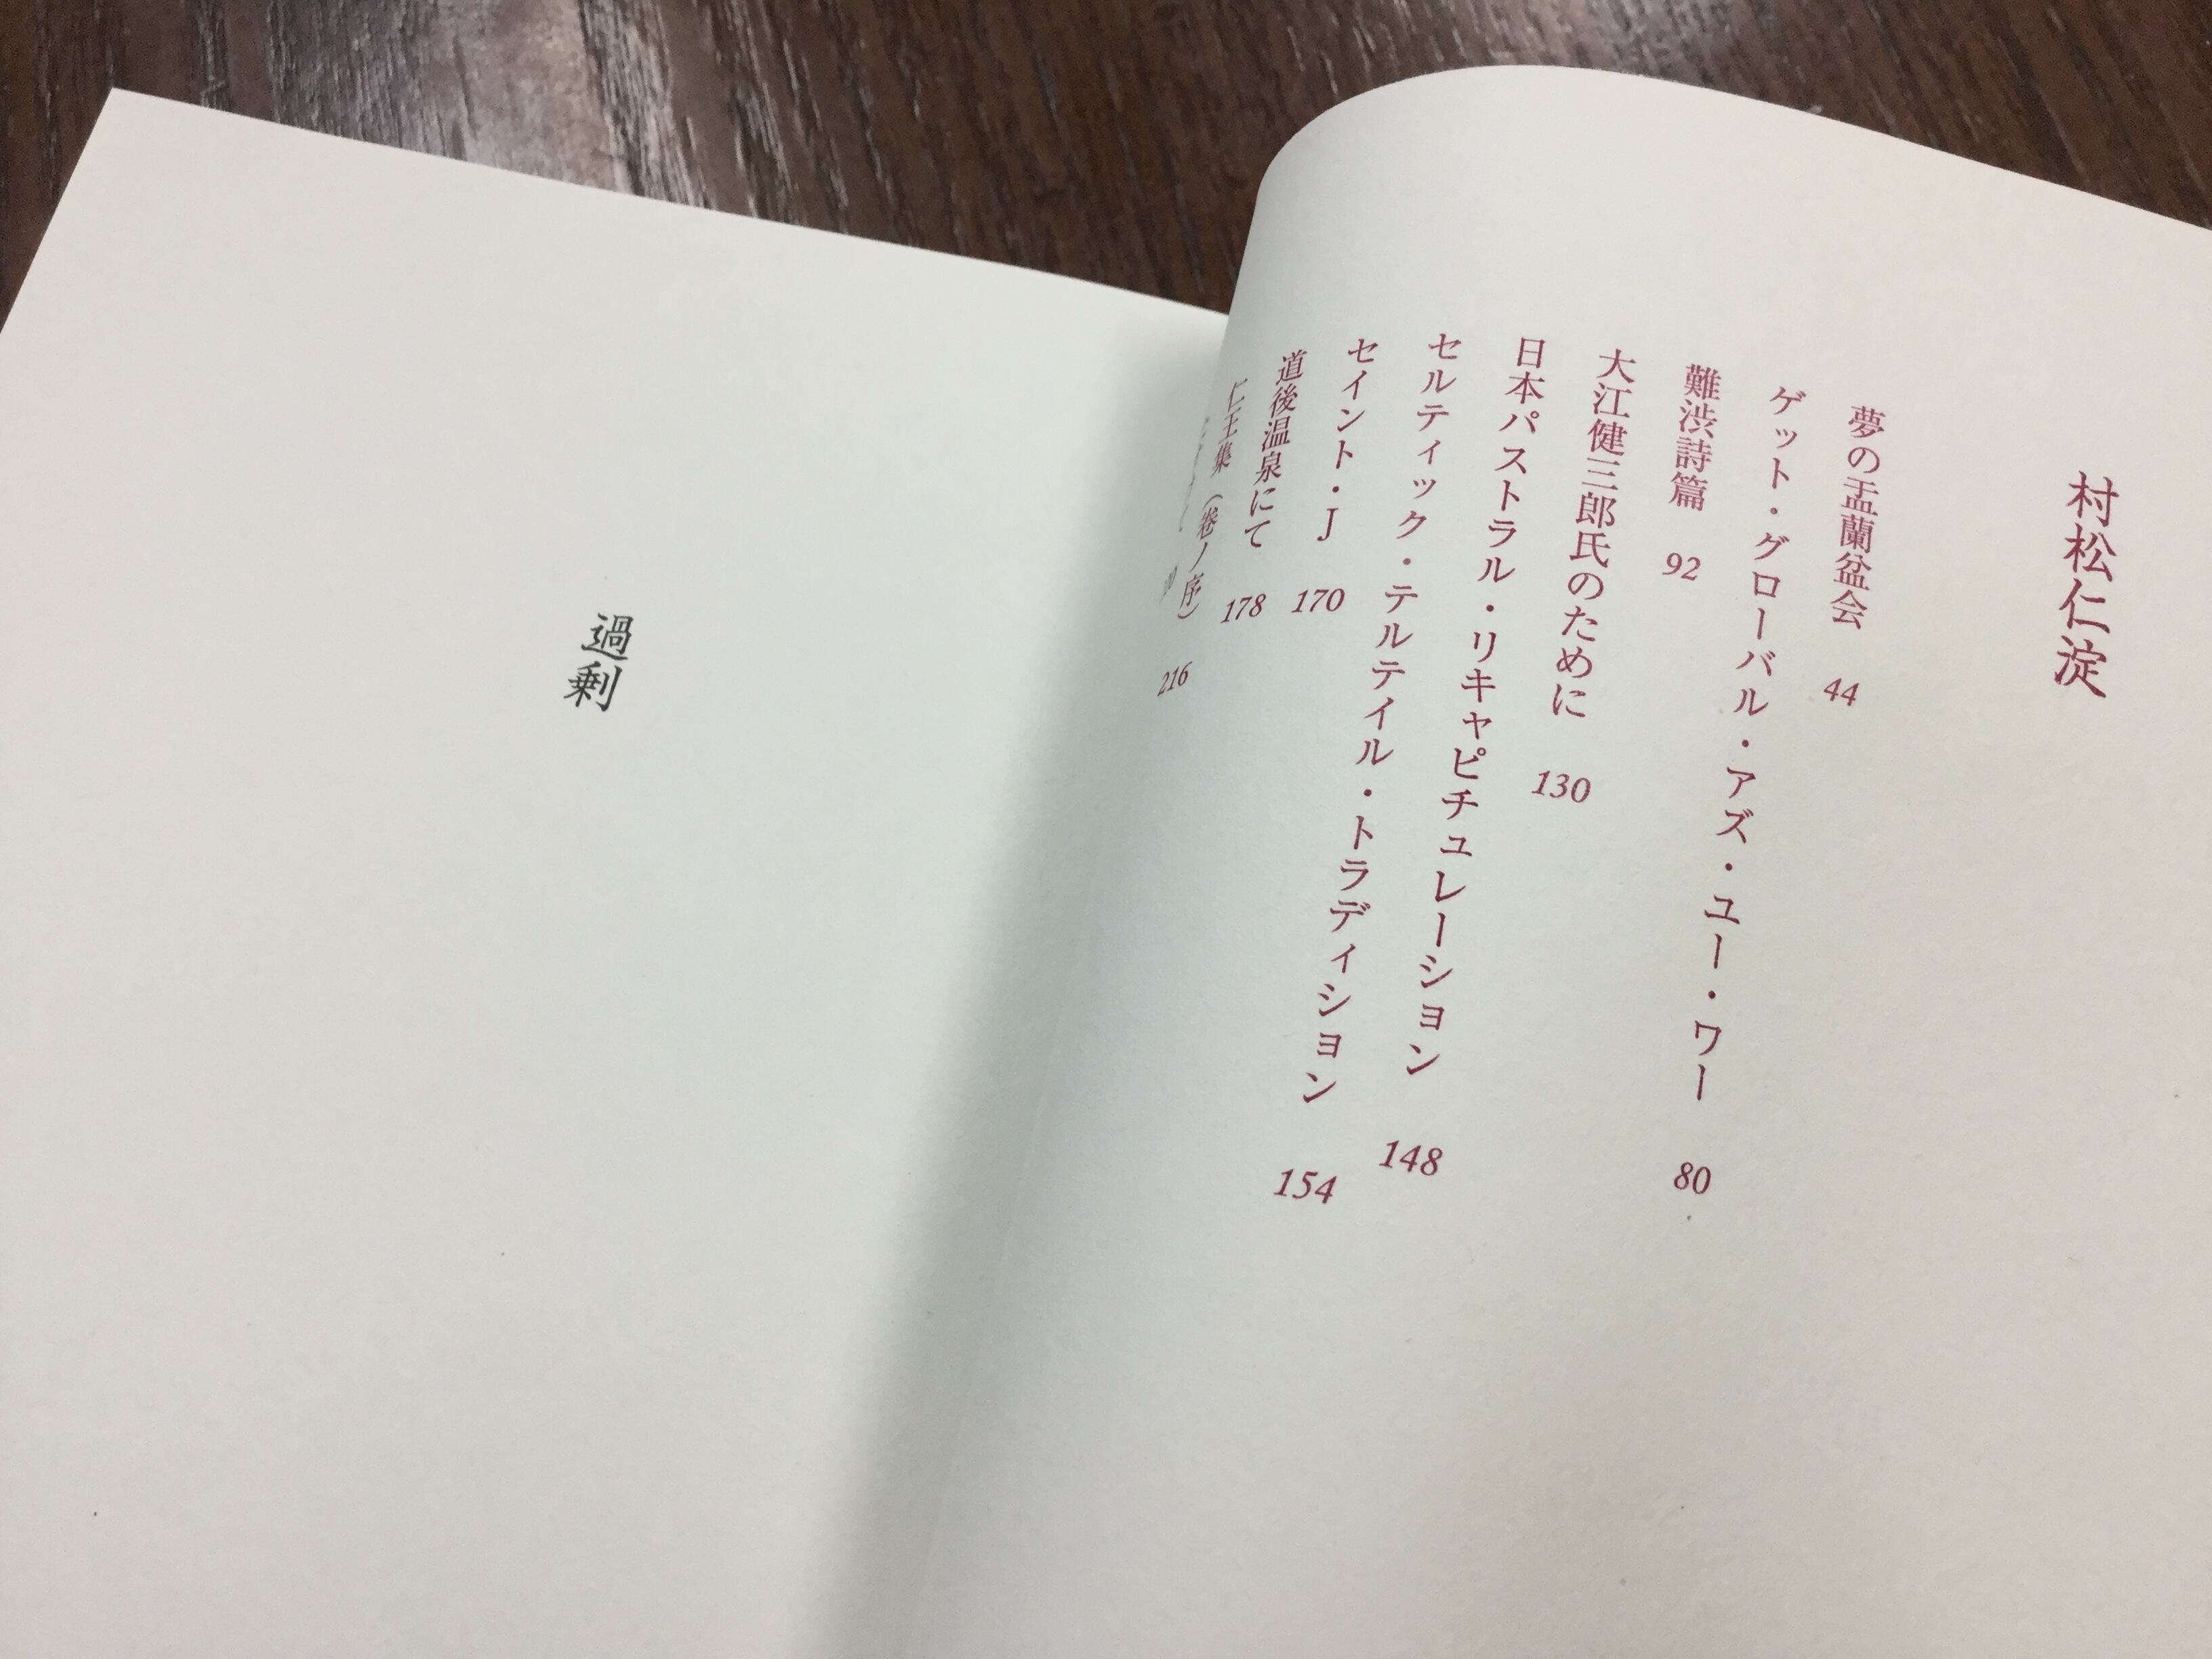 村松仁淀
夢の盂蘭盆会 44
ゲット・グローバル・アズ・ユー・ワー 80
難渋詩篇 92
大江健三郎氏のために 130
日本パストラル・リキャピチュレーション 148
セルティック・テルテイル・トラディション 154
セイント・J 170
道後温泉にて 178
仁王集（巻ノ序） 216
過剰